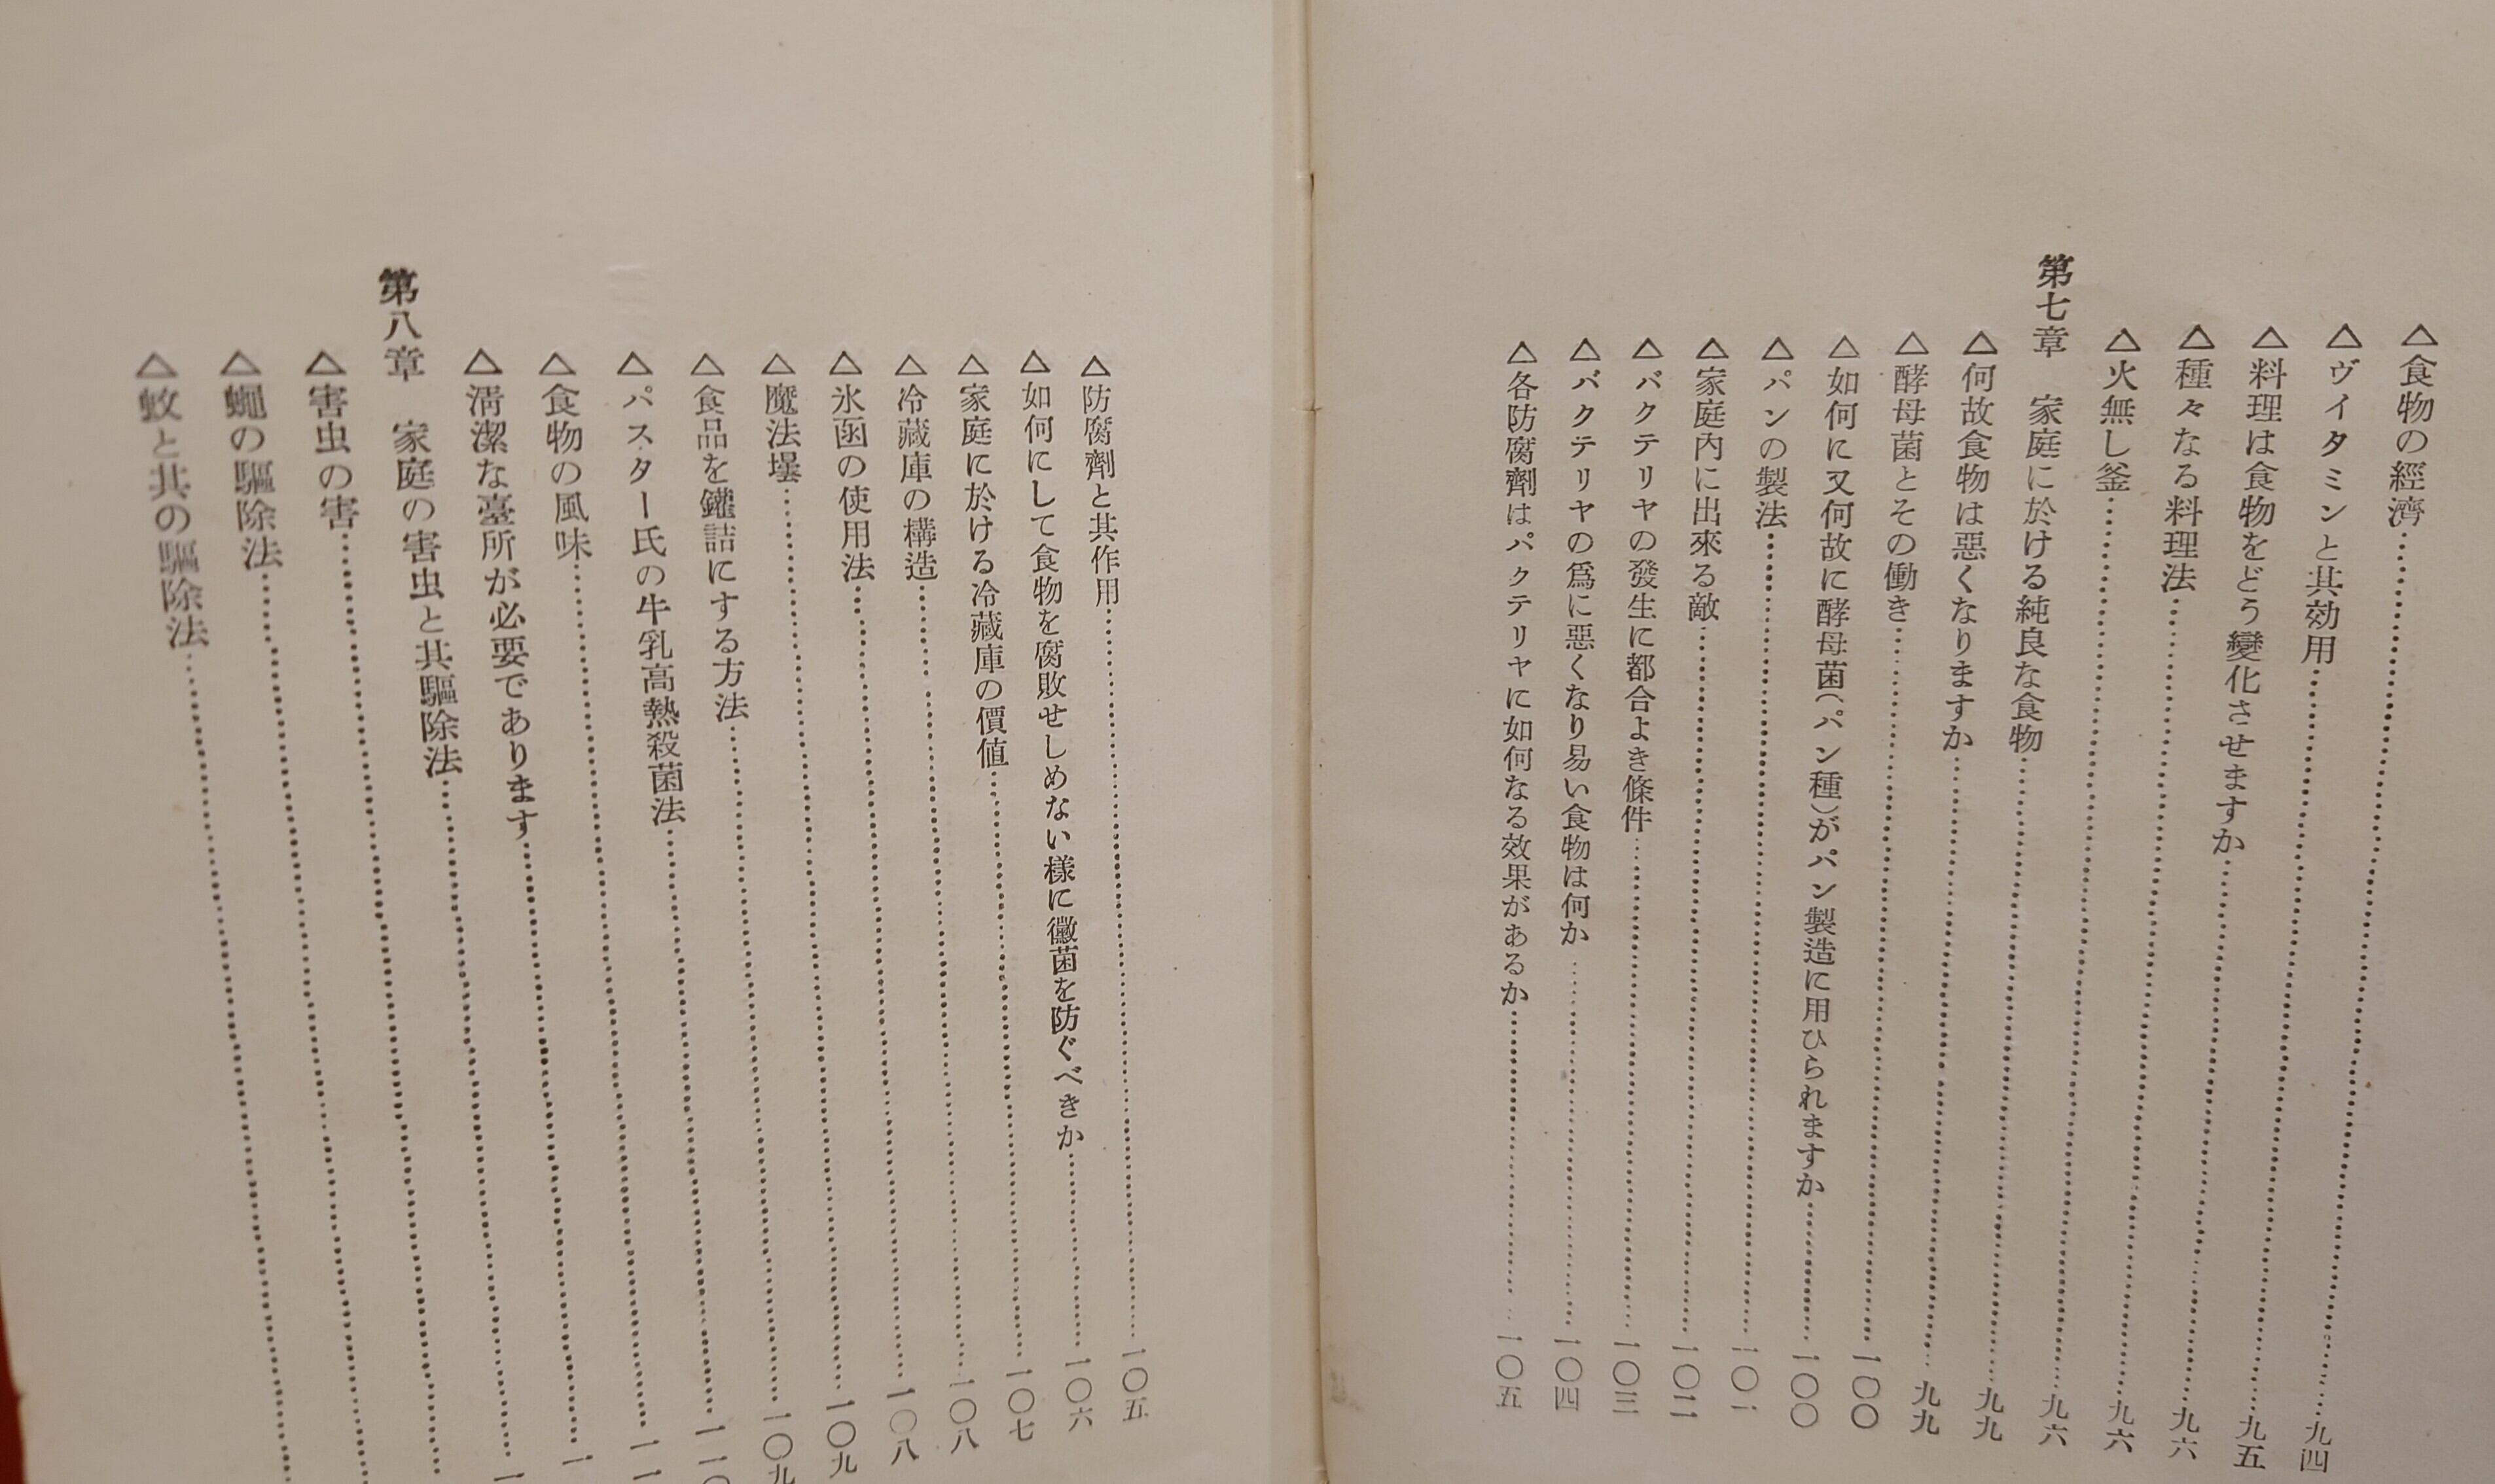 △食物の經濟……九四
△ヴイタミンと其効用……九五
△料理は食物をどう變化させますか……九六
△種々なる料理法……九六
△火無し釜……九六
第七章　家庭に於ける純良な食物……九九
△何故食物は惡くなりますか……九九
△酵母菌とその働き……一〇〇
△如何に又何故に酵母菌(パン種)がパン製造に用ひられますか……一〇〇
△パンの製法……一〇一
△家庭內に出來る敵……一〇二
△バクテリヤの發生に都合よき條件……一〇三
△バクテリヤの爲に惡くなり易い食物は何か……一〇四
△各防腐劑はパクテリヤに如何なる效果があるか……一〇五
△防腐劑と其作用……一〇五
△如何にして食物を腐敗せしめない樣に黴菌を防ぐべきか……一〇六
△家庭に於ける冷藏庫の價値……一〇七
△冷藏庫の構造……一〇八
△氷函の使用法……一〇八
△魔法壜……一〇九
△食品を鑵詰にする方法……一〇九
△パスター氏の牛乳高熱殺菌法……一一〇
△食物の風味……一一
△淸潔な臺所が必要であります……一
第八章　家庭の害虫と其驅除法……一
△害虫の害……
△蠅の驅除法……
△蚊と其の驅除法……